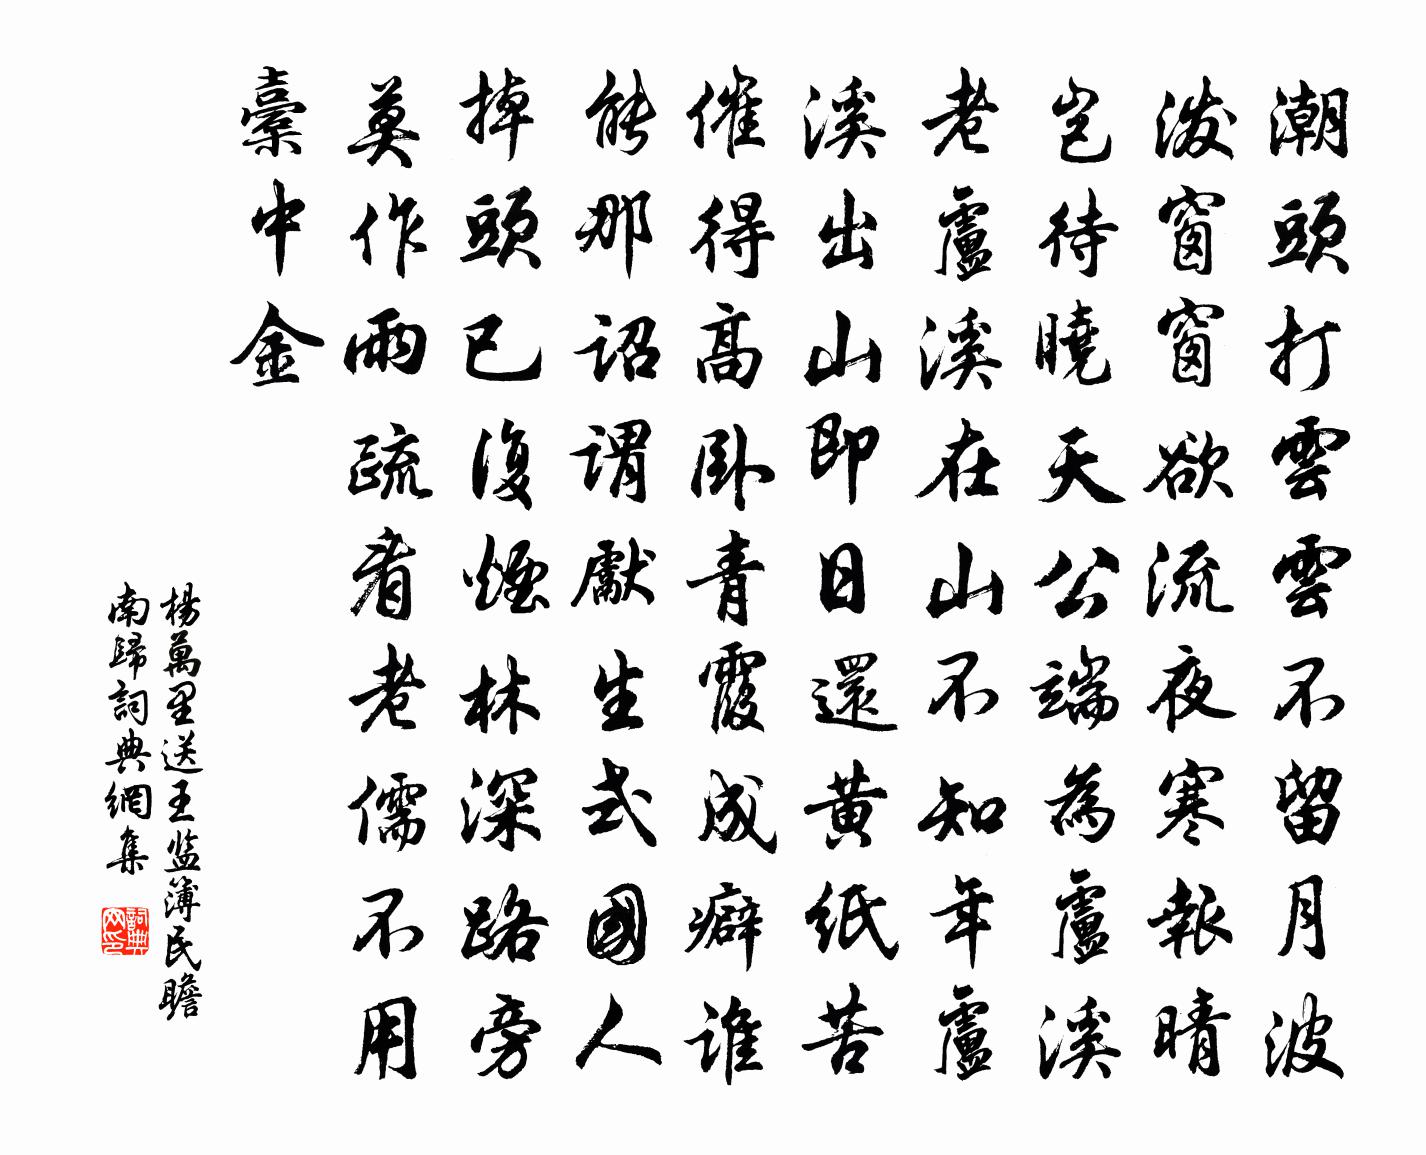 潮頭打雲雲不留月波
潑窗窗欲流夜寒報晴
豈待曉天公端為盧溪
老盧溪在山不知年盧
溪出山即日還黃紙苦
催得高卧青霞成癖誰
能那詔謂獻生式國人
掉頭已復煙林深路旁
莫作雨疏看老儒不用
橐中金
楊萬里送王监簿民瞻
南歸詞典網集
詞典网印